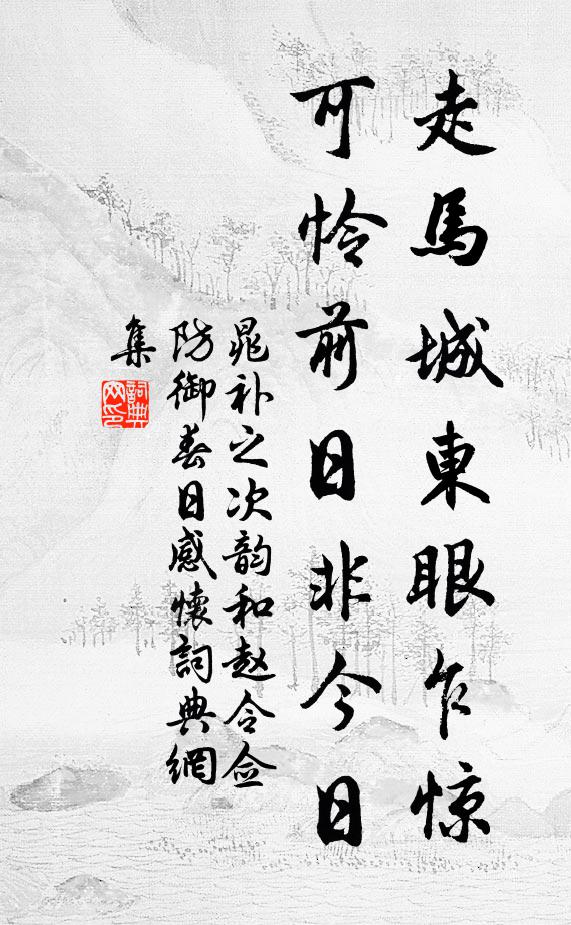 走馬城東眼乍惊
可怜前日非今日
晁补之次韵和赵令佥
防御春日感懷詞典網
集
詞典
网印